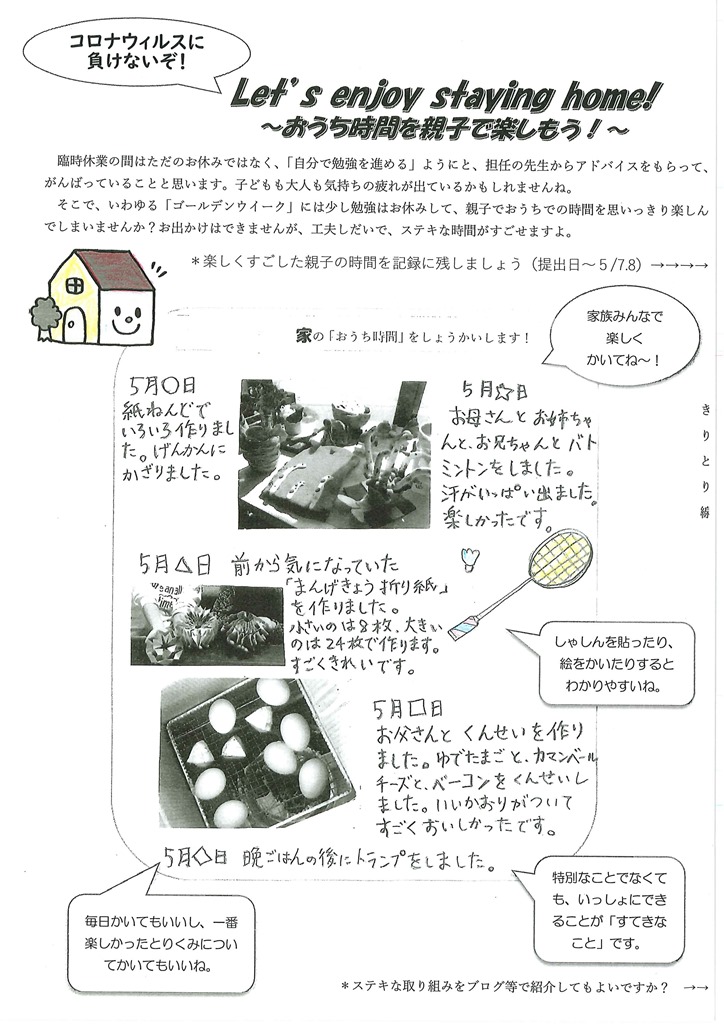 コロナウィルスに
負けないぞ！
Let's enjoy staying home!
～おうち時間を親子で楽しもう！～
臨時休業の間はただのお休みではなく、「自分で勉強を進める」ようにと、担任の先生からアドバイスをもらって、
がんばっていることと思います。子どもも大人も気持ちの疲れが出ているかもしれませんね。
そこで、いわゆる「ゴールデンウイーク」には少し勉強はお休みして、親子でおうちでの時間を思いっきり楽しん
でしまいませんか？お出かけはできませんが、工夫しだいで、ステキな時間がすごせますよ。
＊楽しくすごした親子の時間を記録に残しましょう（提出日～５/7.8）→→→→
家の「おうち時間」をしょうかいします！
家族みんなで
楽しく
かいてね～！
5月○日
紙ねんどで
いろいろ作りまし
た。げんかんに
かざりました。
5月☆日
お母さんと お姉ちゃ
んと、お兄ちゃんと バト
ミントンをしました。
汗がいっぱい出ました。
楽しかったです。
きりとり線
5月△日 前から気になっていた
「まんげきょう折り紙」
を作りました。
小さいのは8枚、大きい
のは24枚で作ります。
すごくきれいです。
しゃしんを貼ったり、
絵をかいたりすると
わかりやすいね。
5月□日
お父さんと くんせいを作り
ました。ゆでたまごと、カマンベール
チーズと、ベーコンをくんせいし
ました。いいかおりがついて
すごくおいしかったです。
5月◇日 晩ごはんの後にトランプをしました。
毎日かいてもいいし、一番
楽しかったとりくみについ
てかいてもいいね。
特別なことでなくて
も、いっしょにでき
ることが「すてきな
こと」です。
＊ステキな取り組みをブログ等で紹介してもよいですか？ →→